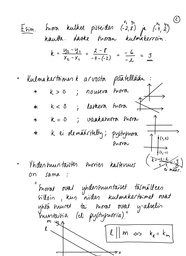 Esim. Suora kulkee pisteiden (-2,8) ja (-4,2)
kautta. Laske suoran kulmakerroin.
k = y₂ - y₁ / x₂ - x₁ = 2 - 8 / -4 - (-2) = -6 / -2 = 3
• Kulmakertoimen k arvosta päätellään:
• k > 0 ; nouseva suora
• k < 0 ; laskeva suora
• k = 0 ; vaakasuora suora
• k ei määritelty ; pystysuora
suora
• Yhdensuuntaisten suorien kaltevuus
on sama :
• suorat ovat yhdensuuntaiset täsmälleen
silloin, kun niiden kulmakertoimet ovat
yhtä suuret tai suorat ovat y-akselin
suuntaisia (el pystysuoria)
l || m ⇔ kₗ = kₘ
l
m